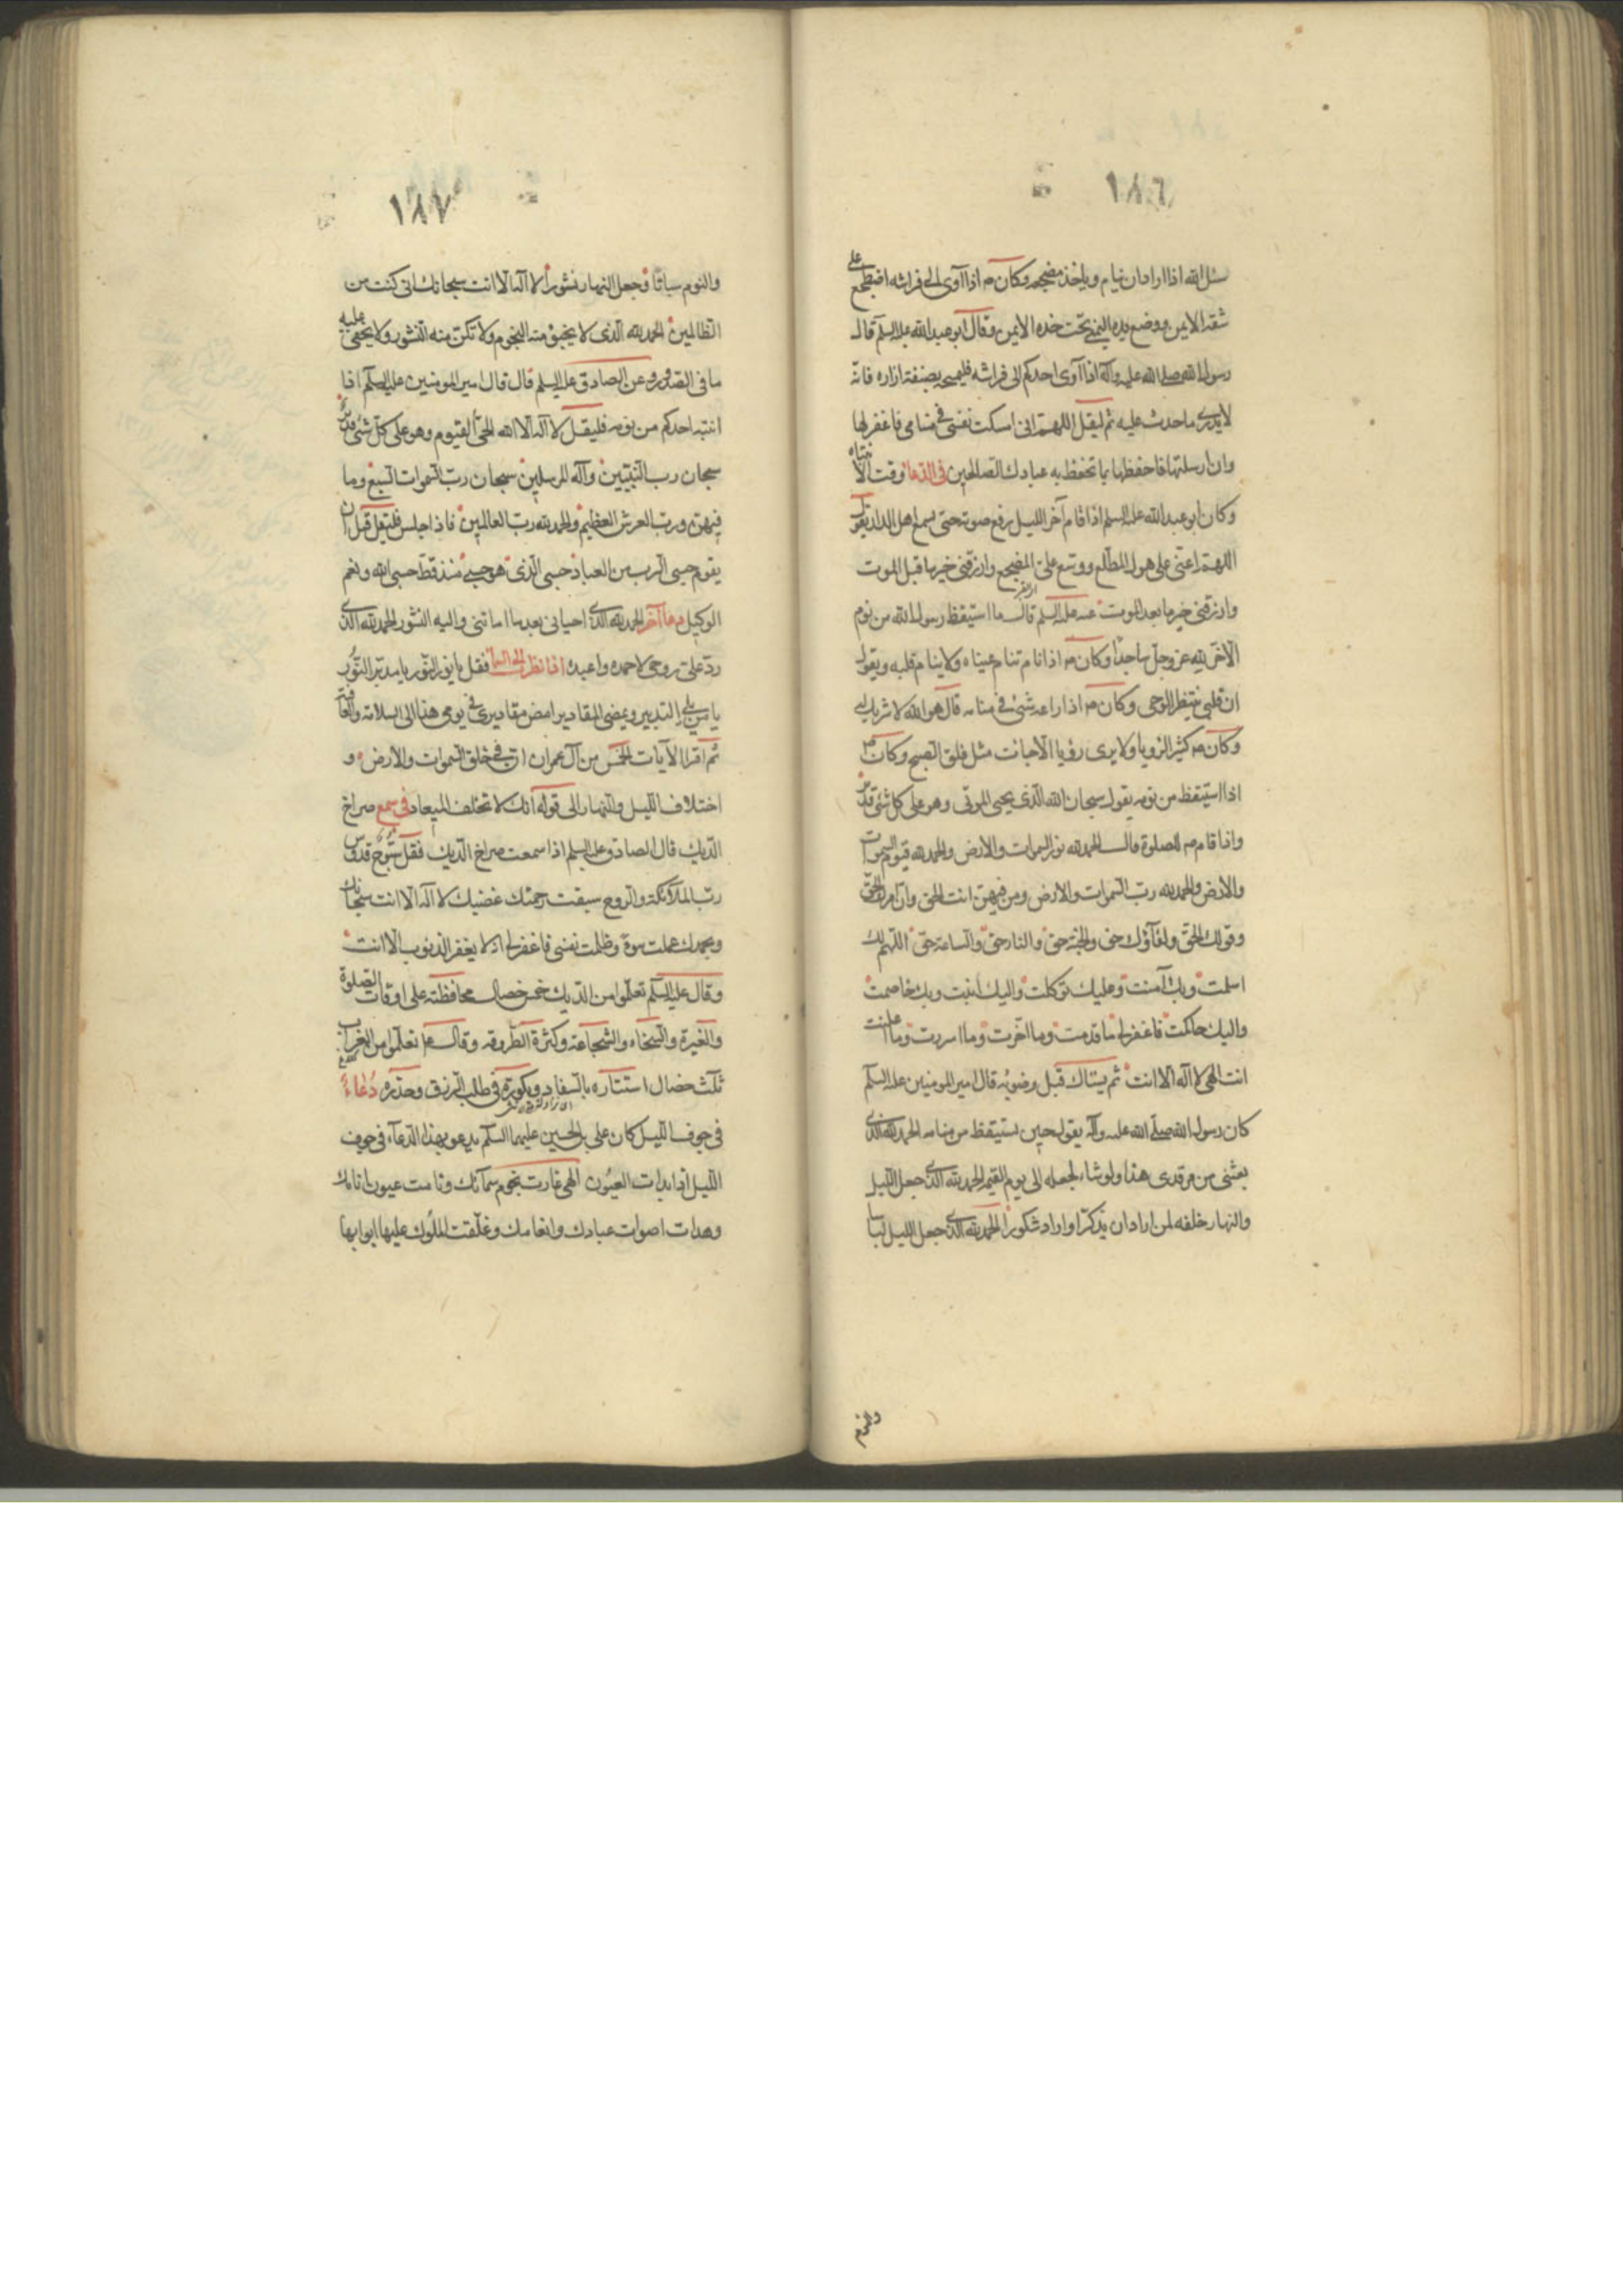 ١٨٦
سئل الله اذا اراد ان ينام وياخذ مضجعه وكان ص اذا آوى الى فراشه اضطجع على
شقه الايمن ووضع يده اليمنى تحت خده الايمن وقال ابو عبد الله عليه السلم قال
رسول الله صلى الله عليه وآله اذا آوى احدكم الى فراشه فليمسحه بصنفة ازاره فانه
لا يدرى ما حدث عليه ثم ليقل اللهم انى امسكت نفسى فى منامى فاغفر لها
وان ارسلتها فاحفظها بما تحفظ به عبادك الصالحين فى الدعا وقت الانتباه
وكان ابو عبد الله عليه السلم اذا قام آخر الليل يرفع صوته حتى يسمع اهل الدار يقول
اللهم اعنى على هول المطلع ووسع على المضجع وارزقنى خير ما قبل الموت
وارزقنى خير ما بعد الموت عنه عليه السلم قال ما استيقظ رسول الله من نوم
الا خر لله عز وجل ساجدا وكان ص اذا نام تنام عيناه ولا ينام قلبه ويقول
ان قلبى ينتظر الوحى وكان ص اذا راعه شئ فى منامه قال هو الله لا شريك له
وكان ص كثير الرويا ولا يرى رؤيا الا جائت مثل فلق الصبح وكان ص
اذا استيقظ من نومه يقول سبحان الله الذى يحيى الموتى وهو على كل شئ قدير
واذا قام ص للصلوة قال الحمد لله نور السموات والارض والحمد لله قيوم السموات
والارض والحمد لله رب السموات والارض ومن فيهن انت الحق وان امرك الحق
وقولك الحق ولقاؤك حق والجنة حق والنار حق والساعة حق اللهم لك
اسلمت وبك آمنت وعليك توكلت واليك انبت وبك خاصمت
واليك حاكمت فاغفر لى ما قدمت وما اخرت وما اسررت وما اعلنت
انت الهى لا اله الا انت ثم يستاك قبل وضوئه قال امير المومنين عليه السلم
كان رسول الله صلى الله عليه وآله يقول حين يستيقظ من منامه الحمد لله الذى
بعثنى من مرقدى هذا ولو شاء لجعله الى يوم القيمة الحمد لله الذى جعل الليل
والنهار خلفة لمن اراد ان يذكر او اراد شكورا الحمد لله الذى جعل الليل لباسا
والنوم
١٨٧
والنوم سباتا وجعل النهار نشورا لا اله الا انت سبحانك انى كنت من
الظالمين الحمد لله الذى لا يخبو منه النجوم ولا تكن منه النشور ولا يخفى عليه
ما فى الصدور وعن الصادق عليه السلم قال قال امير المومنين عليه السلم اذا
انتبه احدكم من نومه فليقل لا اله الا الله الحى القيوم وهو على كل شئ قدير
سبحان رب النبيين وآله المرسلين سبحان رب السموات السبع وما
فيهن ورب العرش العظيم والحمد لله رب العالمين فاذا جلس فليقل قبل ان
يقوم حسبى الرب من العباد حسبى الذى هو حسبى منذ قط حسبى الله ونعم
الوكيل دعا آخر الحمد لله الذى احيانى بعد ما اماتنى واليه النشور الحمد لله الذى
رد على روحى لاحمده واعبده اذا نظر الى السما فقل يا نور النور يا مدبر النور
يا من يلى التدبير ويمضى المقادير امض مقاديرى فى يومى هذا الى السلامة والعافية
ثم اقرا الآيات الخمس من آل عمران ان فى خلق السموات والارض و
اختلاف الليل والنهار الى قوله انك لا تخلف الميعاد فى سمع صراخ
الديك قال الصادق عليه السلم اذا سمعت صراخ الديك فقل سبوح قدوس
رب الملائكة والروح سبقت رحمتك غضبك لا اله الا انت سبحانك
وبحمدك عملت سوء وظلمت نفسى فاغفر لى انه لا يغفر الذنوب الا انت
وقال عليه السلم تعلموا من الديك خمس خصال محافظته على اوقات الصلوة
والغيرة والسخاء والشجاعة وكثرة الطروقه وقال ع تعلموا من الغراب
ثلث خصال استتاره بالسفاد وبكوره فى طلب الرزق وحذره دعاء
فى جوف الليل كان على بن الحسين عليهما السلم يدعو بهذا الدعاء فى جوف
الليل اذا هدات العيون الهى غارت نجوم سمائك ونامت عيون انامك
وهدات اصوات عبادك وانعامك وغلقت الملوك عليها ابوابها